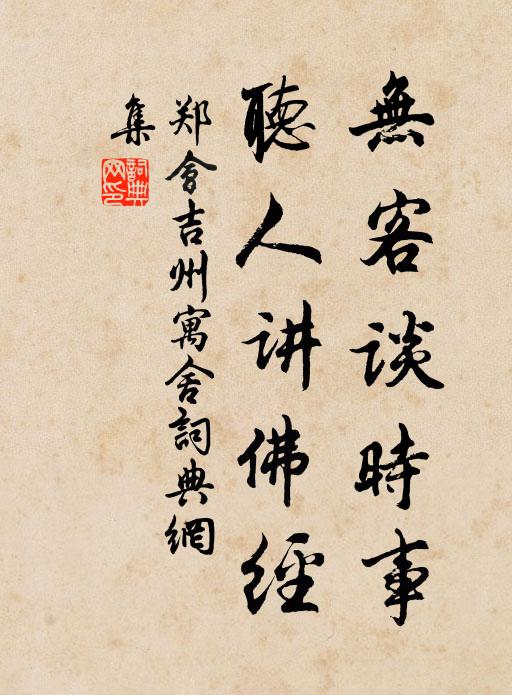 無客談時事
聽人讲佛經
郑會吉州寓舍詞典網
集
詞典網印